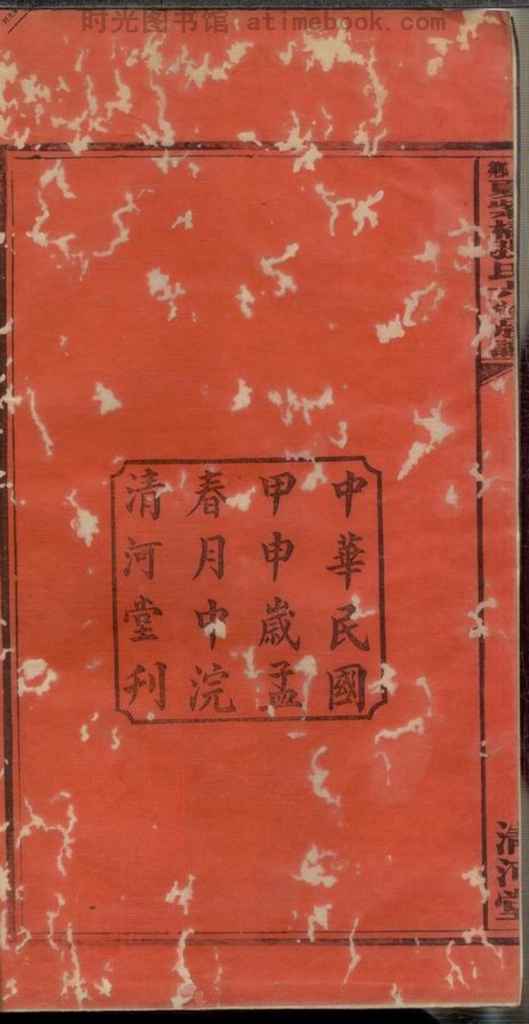 时光图书馆 - atimebook.com
中華民國
甲申歲孟
春月中浣
清河堂刊
清河堂